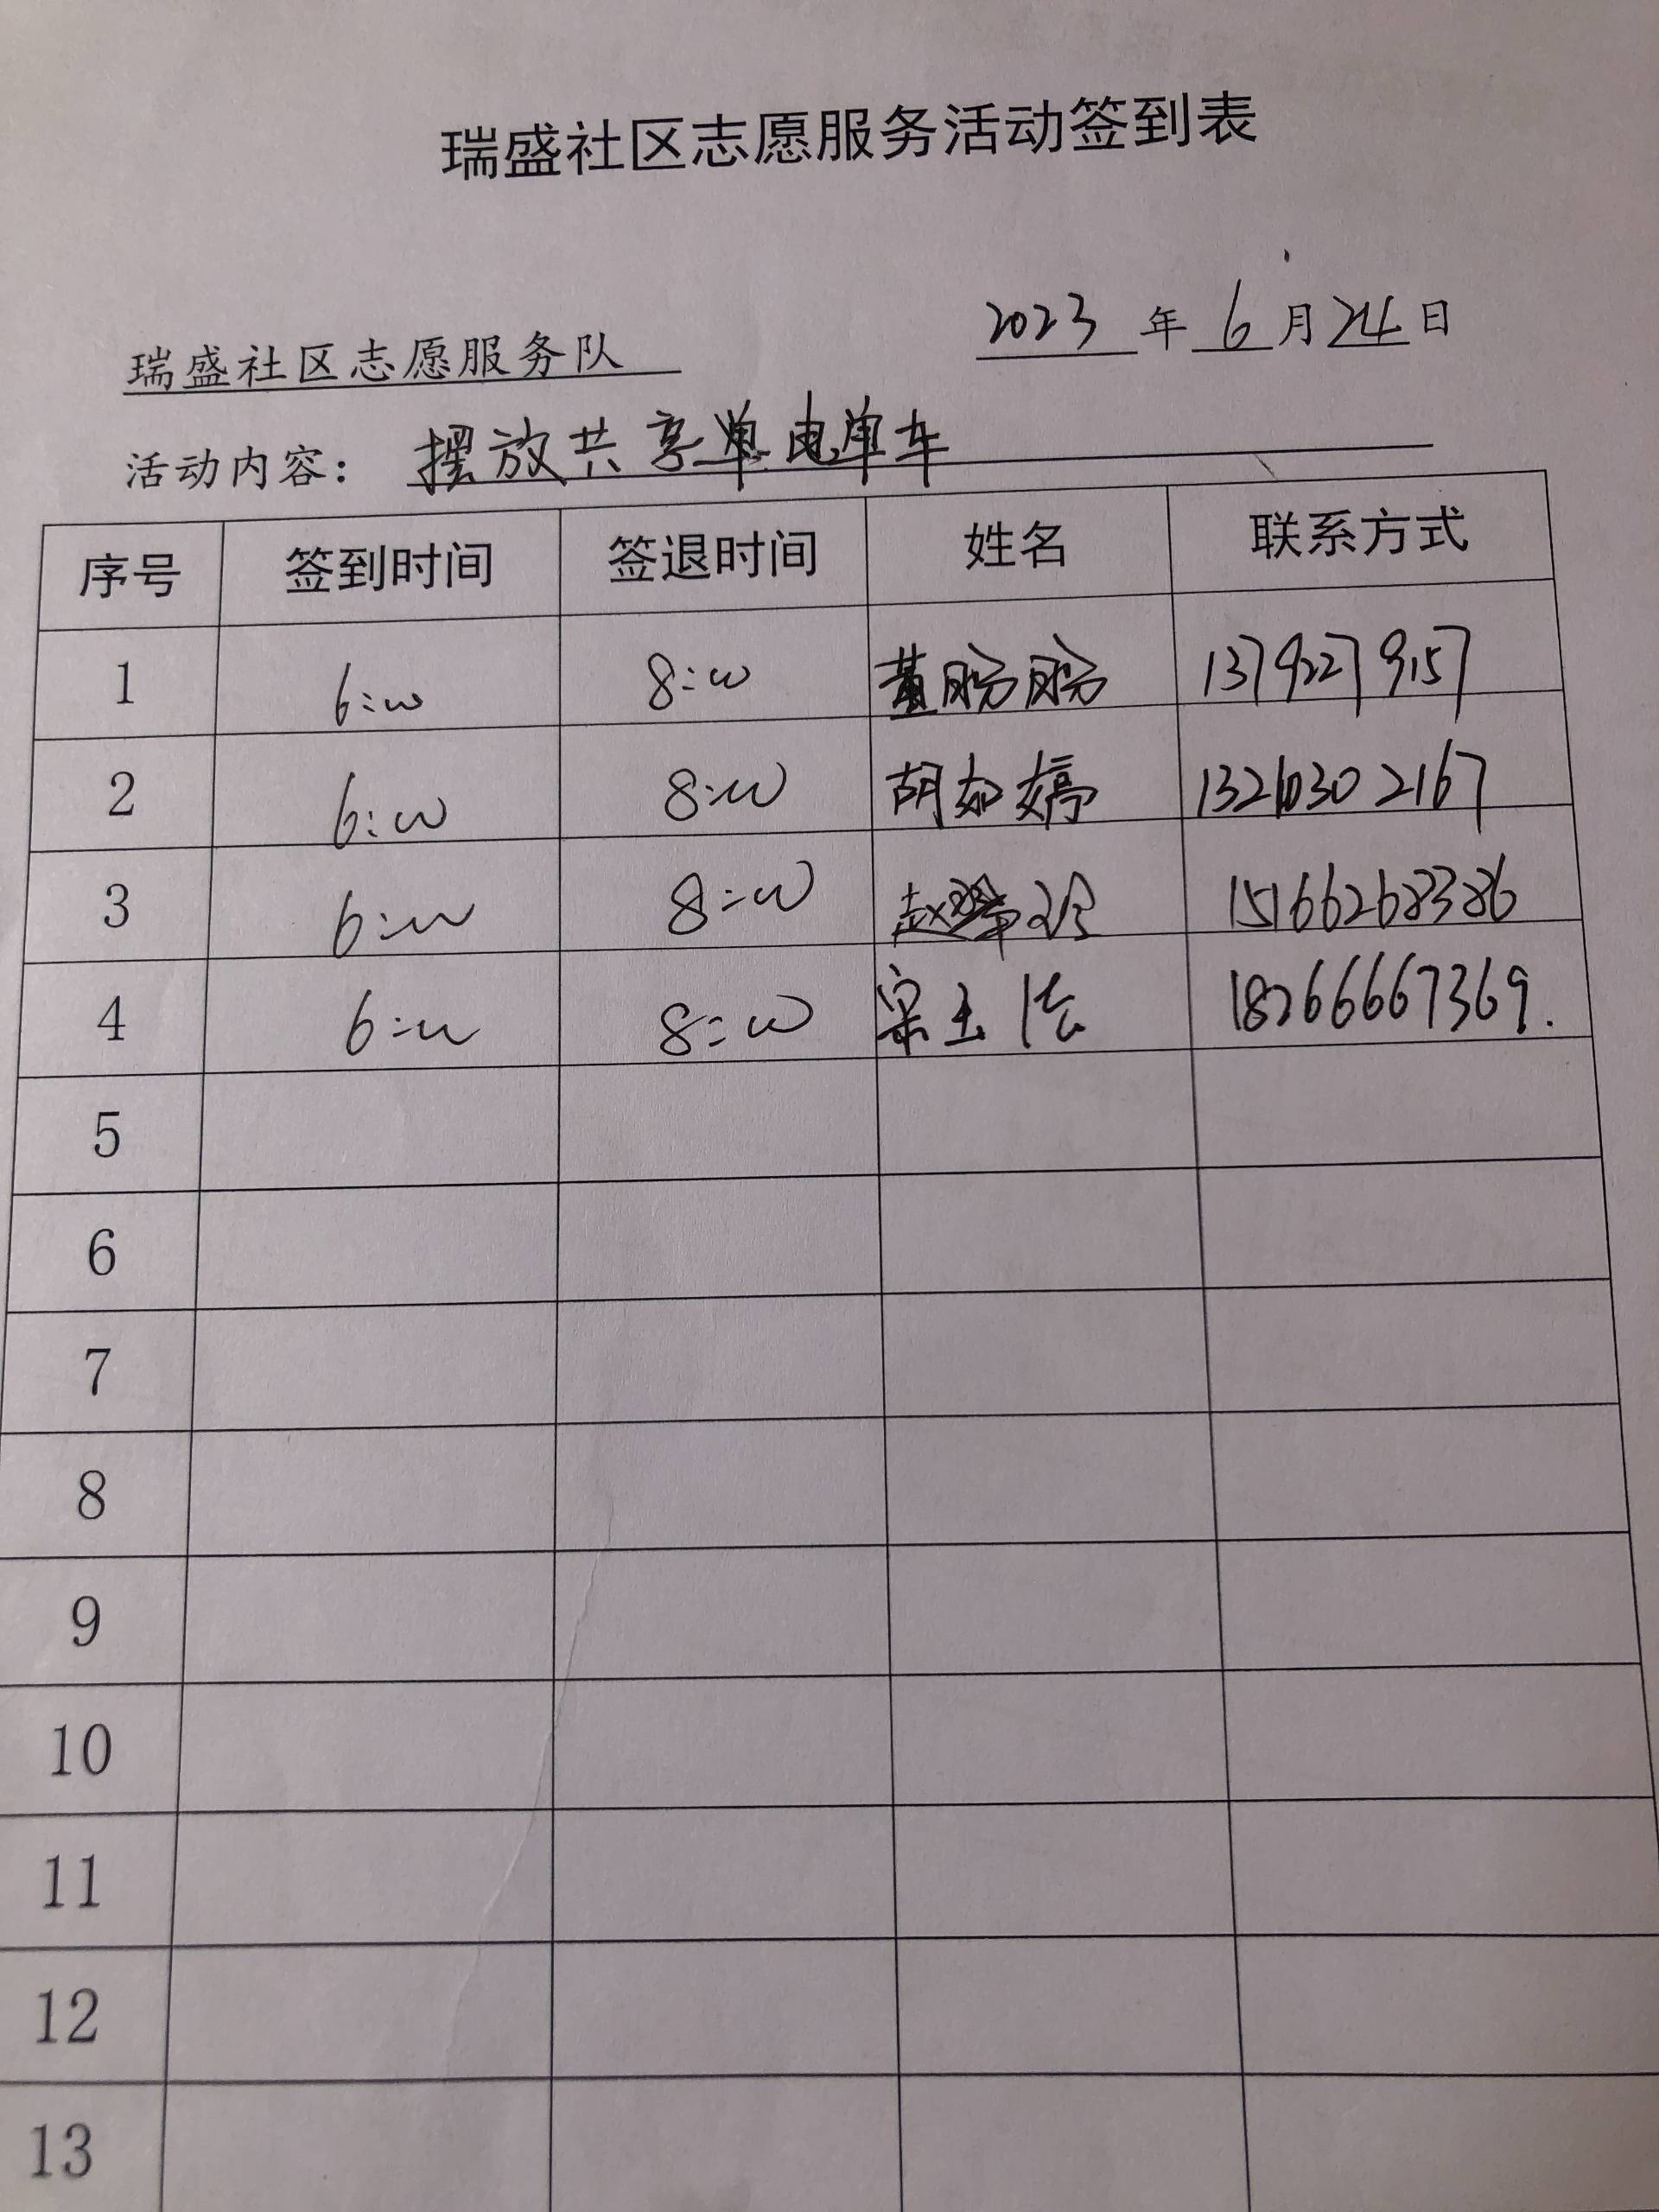 瑞盛社区志愿服务活动签到表
2023 年 6 月 24 日
瑞盛社区志愿服务队
活动内容： 摆放共享单电单车
序号 签到时间 签退时间 姓名 联系方式
1 6:00 8:00 黄盼盼
2 6:00 8:00 胡如婷
3 6:00 8:00 赵 15166268386
4 6:00 8:00 宗玉 18266667369.
5
6
7
8
9
10
11
12
13